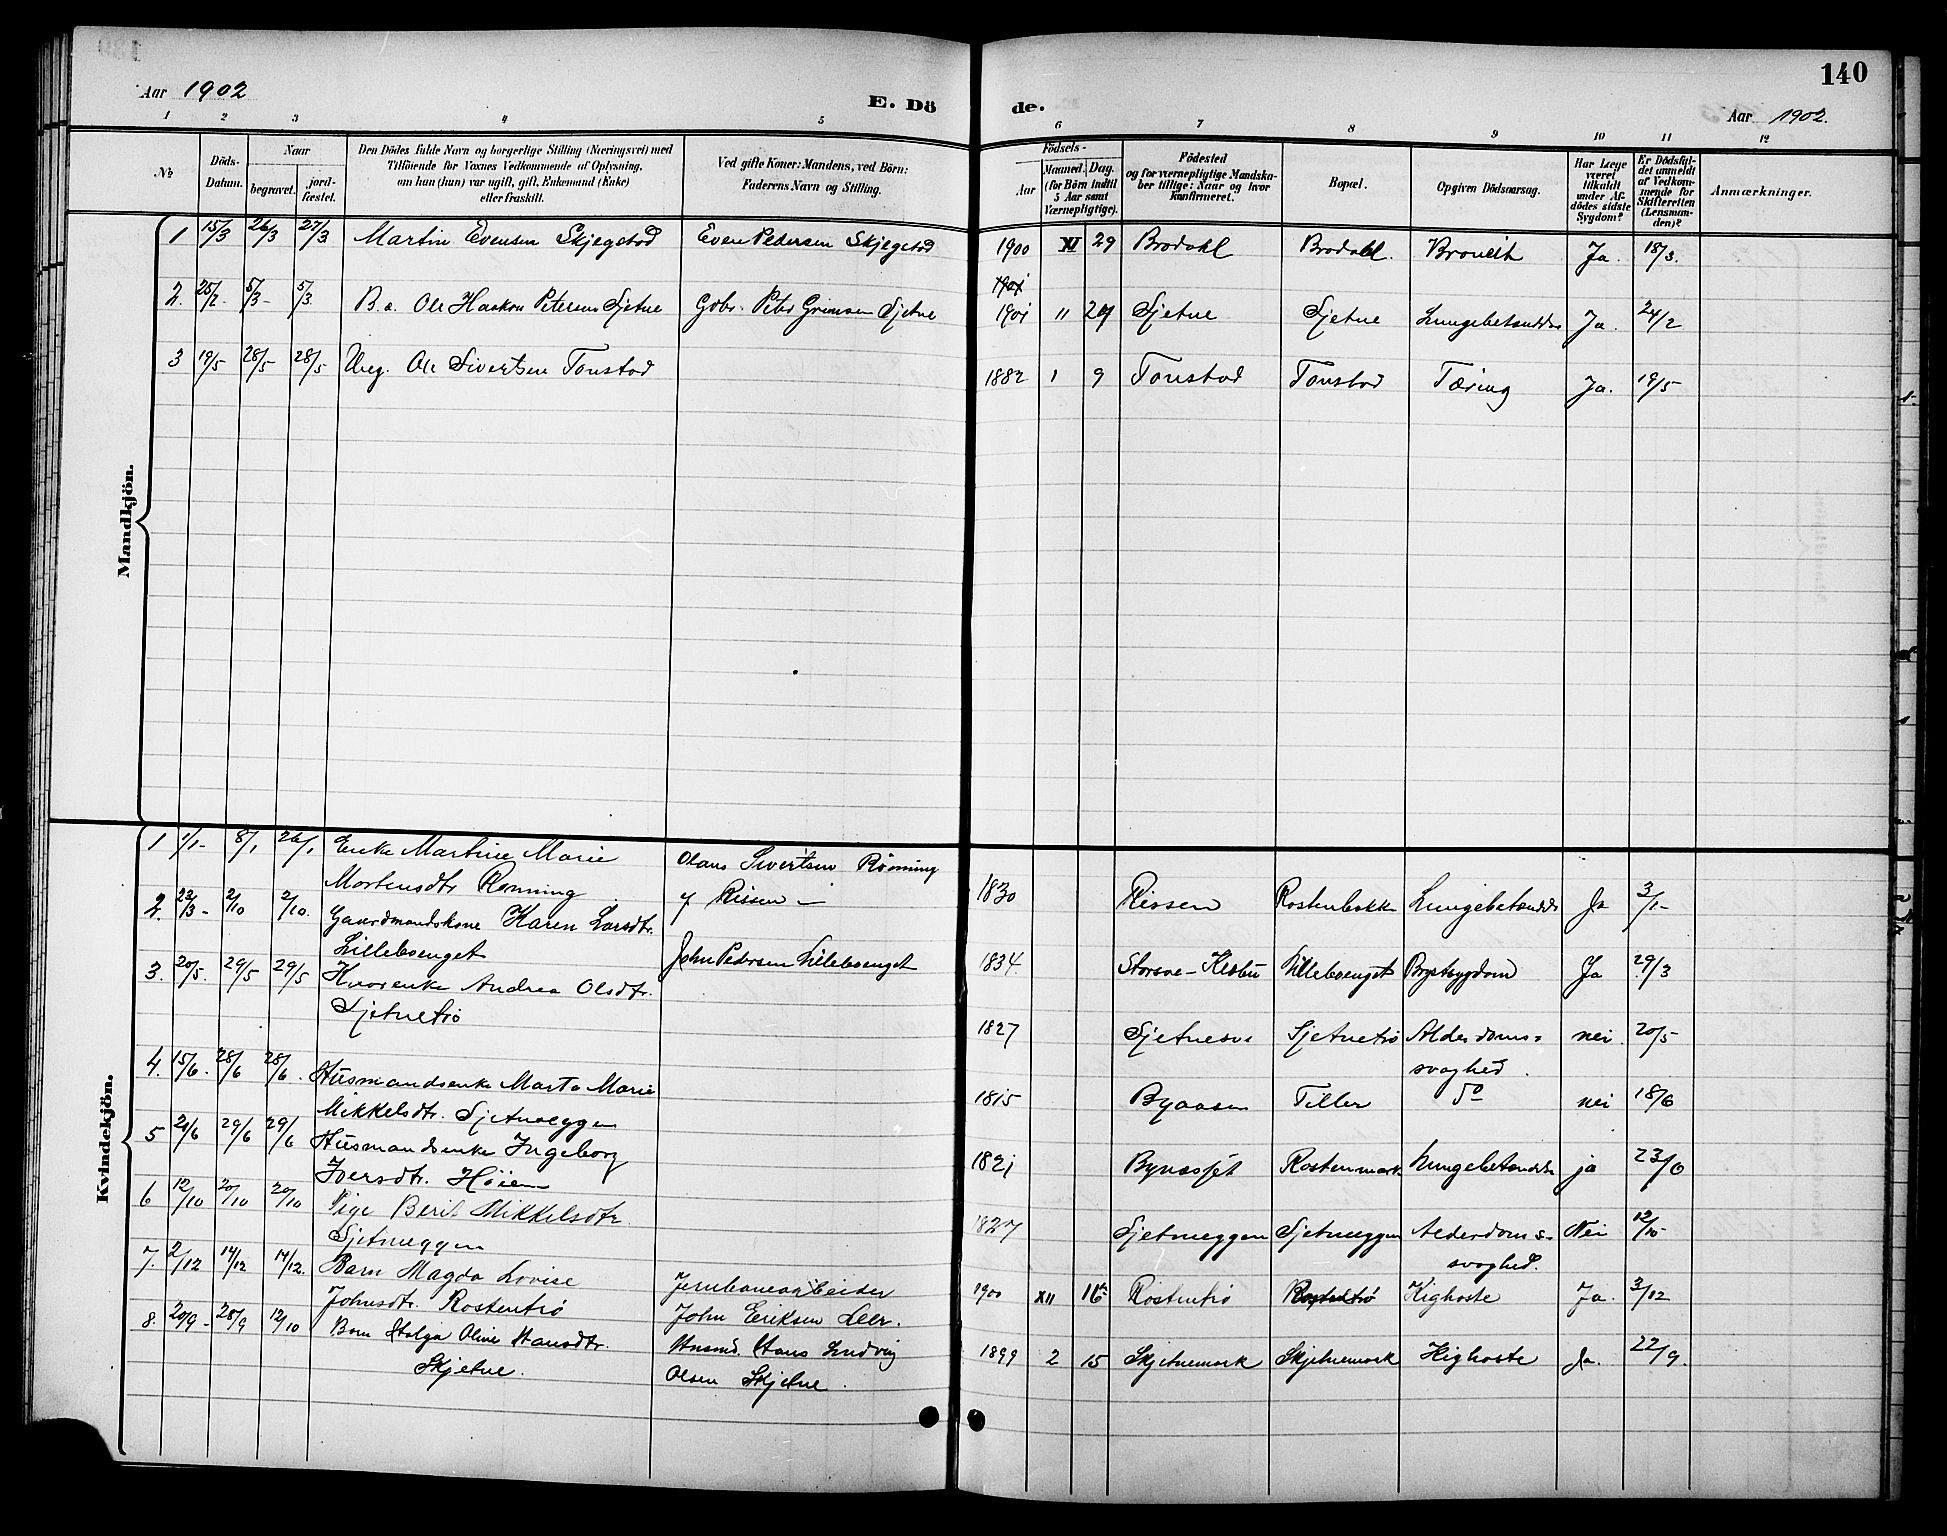 140
Aar 1902
E. Dö
de.
Aar 1902.
1 2 3 4 5
6 7 8 9 10 11 12
№
Döds-
Datum.
Naar
begravet.
jord-
fæstet.
Den Dödes fulde Navn og borgerlige Stilling (Næringsvei) med
Tilföiende for Voxnes Vedkommende af Oplysning,
om han (hun) var ugift, gift, Enkemand (Enke)
eller fraskilt.
Ved gifte Koner: Mandens, ved Börn:
Faderens Navn og Stilling.
Födsels-
Aar
Maaned.
Dag.
(for Börn indtil
5 Aar samt
Værnepligtige).
Födested
og for værnepligtige Mandska-
ber tillige: Naar og hvor
Konfirmeret.
Bopæl.
Opgiven Dödsaarsag.
Har Læge
været
tilkaldt
under Af-
dödes sidste
Sygdom?
Er Dödsfal-
det anmeldt
af Vedkom-
mende for
Skifteretten
(Lensman-
den)?
Anmærkninger.
Mandkjön.
1 15/3 26/3 27/3 Martin Evensen Skjegstad Even Pedersen Skjegstad 1900 XI 29 Brodahl Brodahl. Ja. 18/3.
2. 25/2- 5/3- 5/3 B. a. Ole Haakon Petersen Sjetne Gdbr. Peter Grimsen Sjetne 1901 11 29 Sjetne Sjetne Lungebetændelse Ja. 24/2
3 19/5 28/5 28/5 Ung. Ole Sivertsen Tonstad 1882 1 9 Tonstad Tonstad Tæring Ja. 19/5
Kvindekjön.
1 1/1- 8/1 26/1 Enke Martine Marie Olaus Sivertsen Rönning
Mortensdtr Rönning af Rissen - 1830 Rissen Rostenbakk Lungebetændelse Ja 3/1-
2. 22/3- 2/10 2/10. Gaardmandskone Karen Larsdtr.
Lillebænget John Pedersen Lillebænget 1834 Lillebænget Brystsygdom Ja 29/3
3. 20/5. 29/5 29/5 Andrea Olsdtr.
Sjetnetrö 1827 Sjetnetrö Alderdoms- nei 20/5
svaghed.
4. 15/6. 28/6 28/6. Husmandsenke Marta Marie
Mikkelsdtr. Sjetneeggen 1815 Byaasen Tiller Do nei 18/6
5 21/6 29/6 29/6 Husmandsenke Ingeborg
Iversdtr. Höien 1821 Bynæsset Rostenmark Lungebetændelse ja 23/6
6 12/10 20/10 20/10 Pige Berit Mikkelsdtr.
Sjetneeggen 1827 Sjetneeggen Sjetneeggen Alderdoms- Nei 12/10
svaghed.
7. 2/12 14/12 14/12. Barn Magda Lovise Jernbanearbeider
Johnsdtr. Rostentrö John Eriksen Leer. 1900 XII 16 Rostentrö Rostentrö Kighoste Ja. 3/12
8. 20/9- 28/9 12/10 Barn Helga Oline Hansdtr. Husmd. Hans Ludvig
Skjetne. Olsen Skjetne. 1899 2 15 Skjetnemark Skjetnemark Kighoste Ja. 22/9.